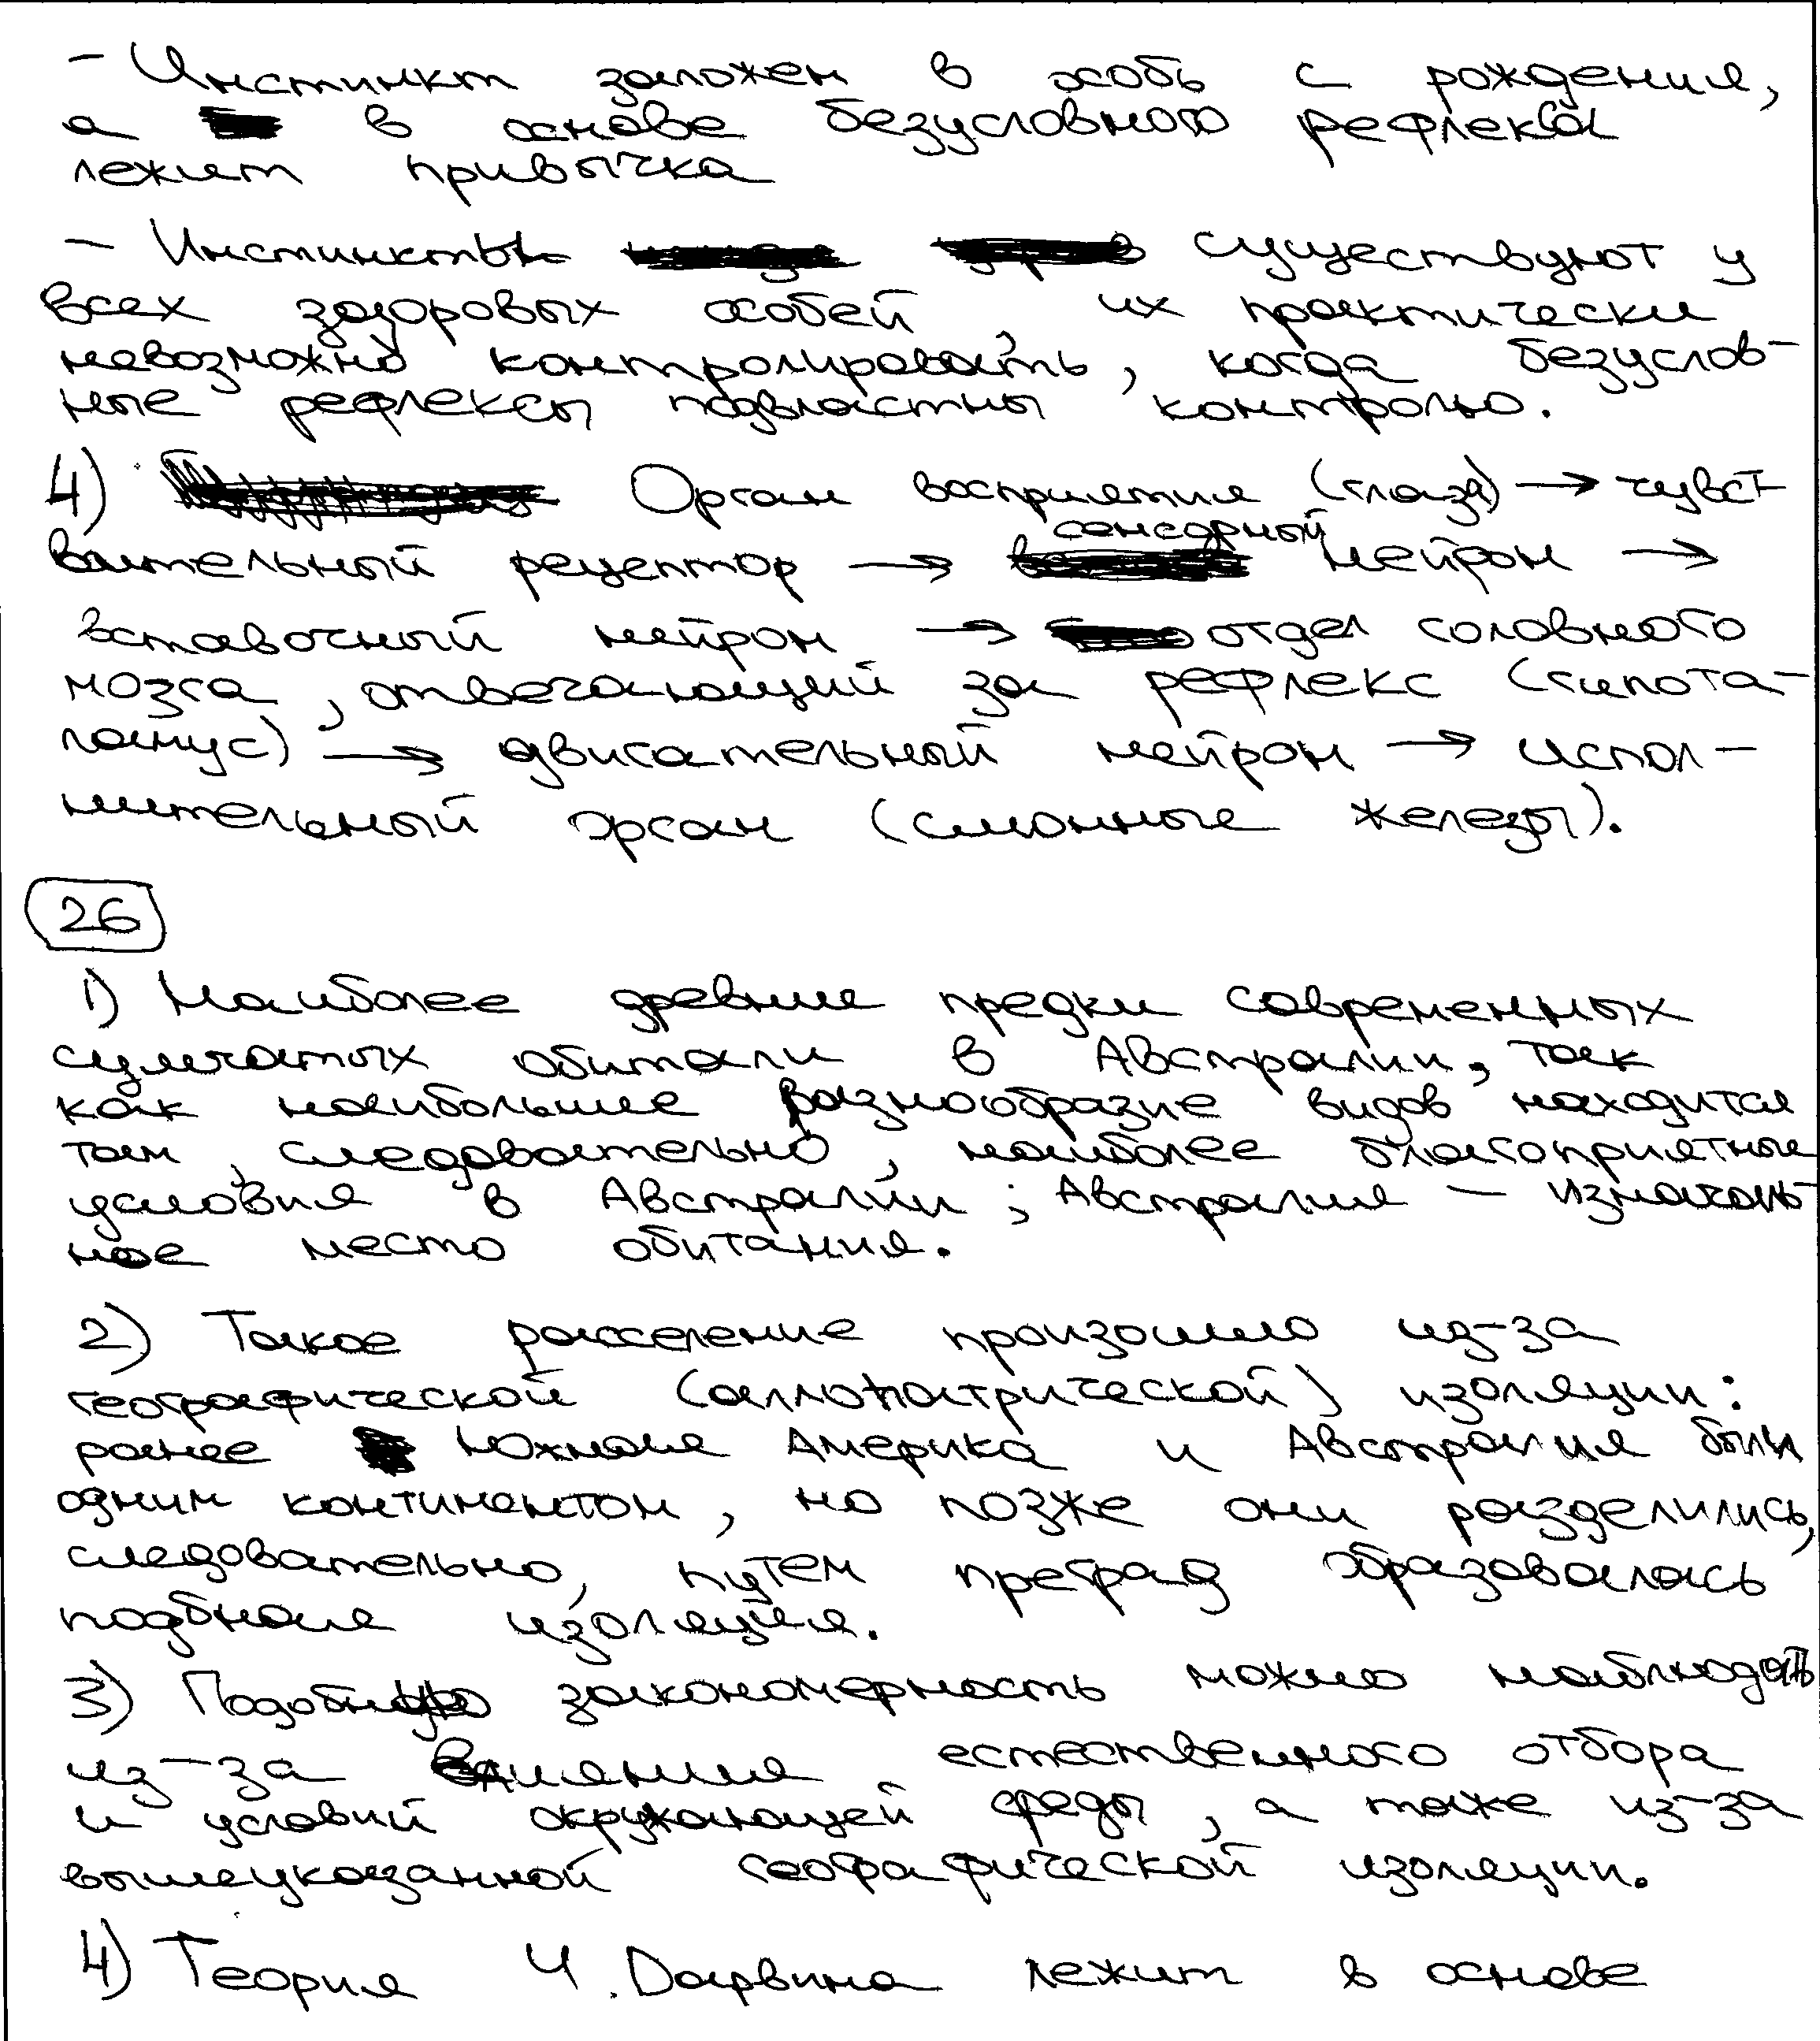 - Инстинкт заложен в особь с рождения,
а в основе безусловного рефлекса
лежит привычка
- Инстинкты существуют у
всех здоровых особей, их практически
невозможно контролировать, когда безуслов-
ные рефлексы подвластны контролю.
4) Орган восприятия (глаза) → чувст
вительный рецептор → сенсорный нейрон →
вставочный нейрон → отдел головного
мозга, отвечающий за рефлекс (гипота-
ламус) → двигательный нейрон → испол-
нительный орган (слюнные железы).
26
1) Наиболее древние предки современных
сумчатых обитали в Австралии, так
как наибольшее разнообразие видов находится
там, следовательно, наиболее благоприятные
условия в Австралии; Австралия - изначаль
ное место обитания.
2) Такое расселение произошло из-за
географической (аллопатрической) изоляции:
ранее Южная Америка и Австралия были
одним континентом, но позже они разделились,
следовательно, путем преград образовалась
подбная изоляция.
3) Подобную закономерность можно наблюдать
из-за влияния естественного отбора
и условий окружающей среды, а также из-за
вышеуказанной географической изоляции.
4) Теория Ч. Дарвина лежит в основе